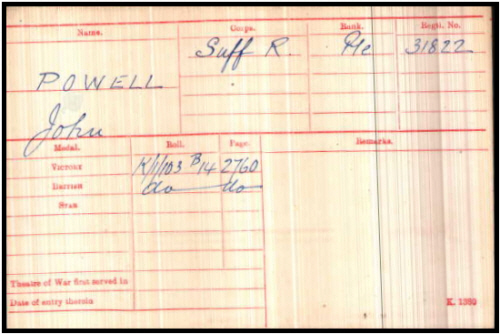 Name. Corps. Rank. Regtl. No.
Suff R. Pte 31822
POWELL
John
Medal. Roll. Page. Remarks.
VICTORY K/1/103 B14 2760
BRITISH do do
STAR
Theatre of War first served in
Date of entry therein
K. 1380